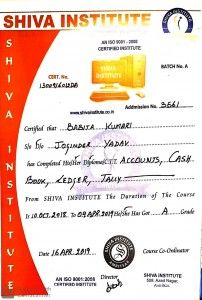 SHIVA INSTITUTE
SHIVA INSTITUTE
AN ISO 9001 : 2008
CERTIFIED INSTITUTE
BATCH No. A
CERT. No.
www.shivainstitute.co.in
Admission No. 3661
Certified that BABITA KUMARI
S/o D/o JOGINDER YADAV
has Completed His/Her Diploma/C.T.T. ACCOUNTS, CASH
BOOK, LEDGER, TALLY
From SHIVA INSTITUTE The Duration of the Course
is 10.OCT.2018 to 09.APR.2019 He/She Has Got A Grade
Date 16.APR.2019
SHIVA INSTITUTE
Course Co-Ordinator
Director
AN ISO 9001:2008
Certified Institute
SHIVA INSTITUTE